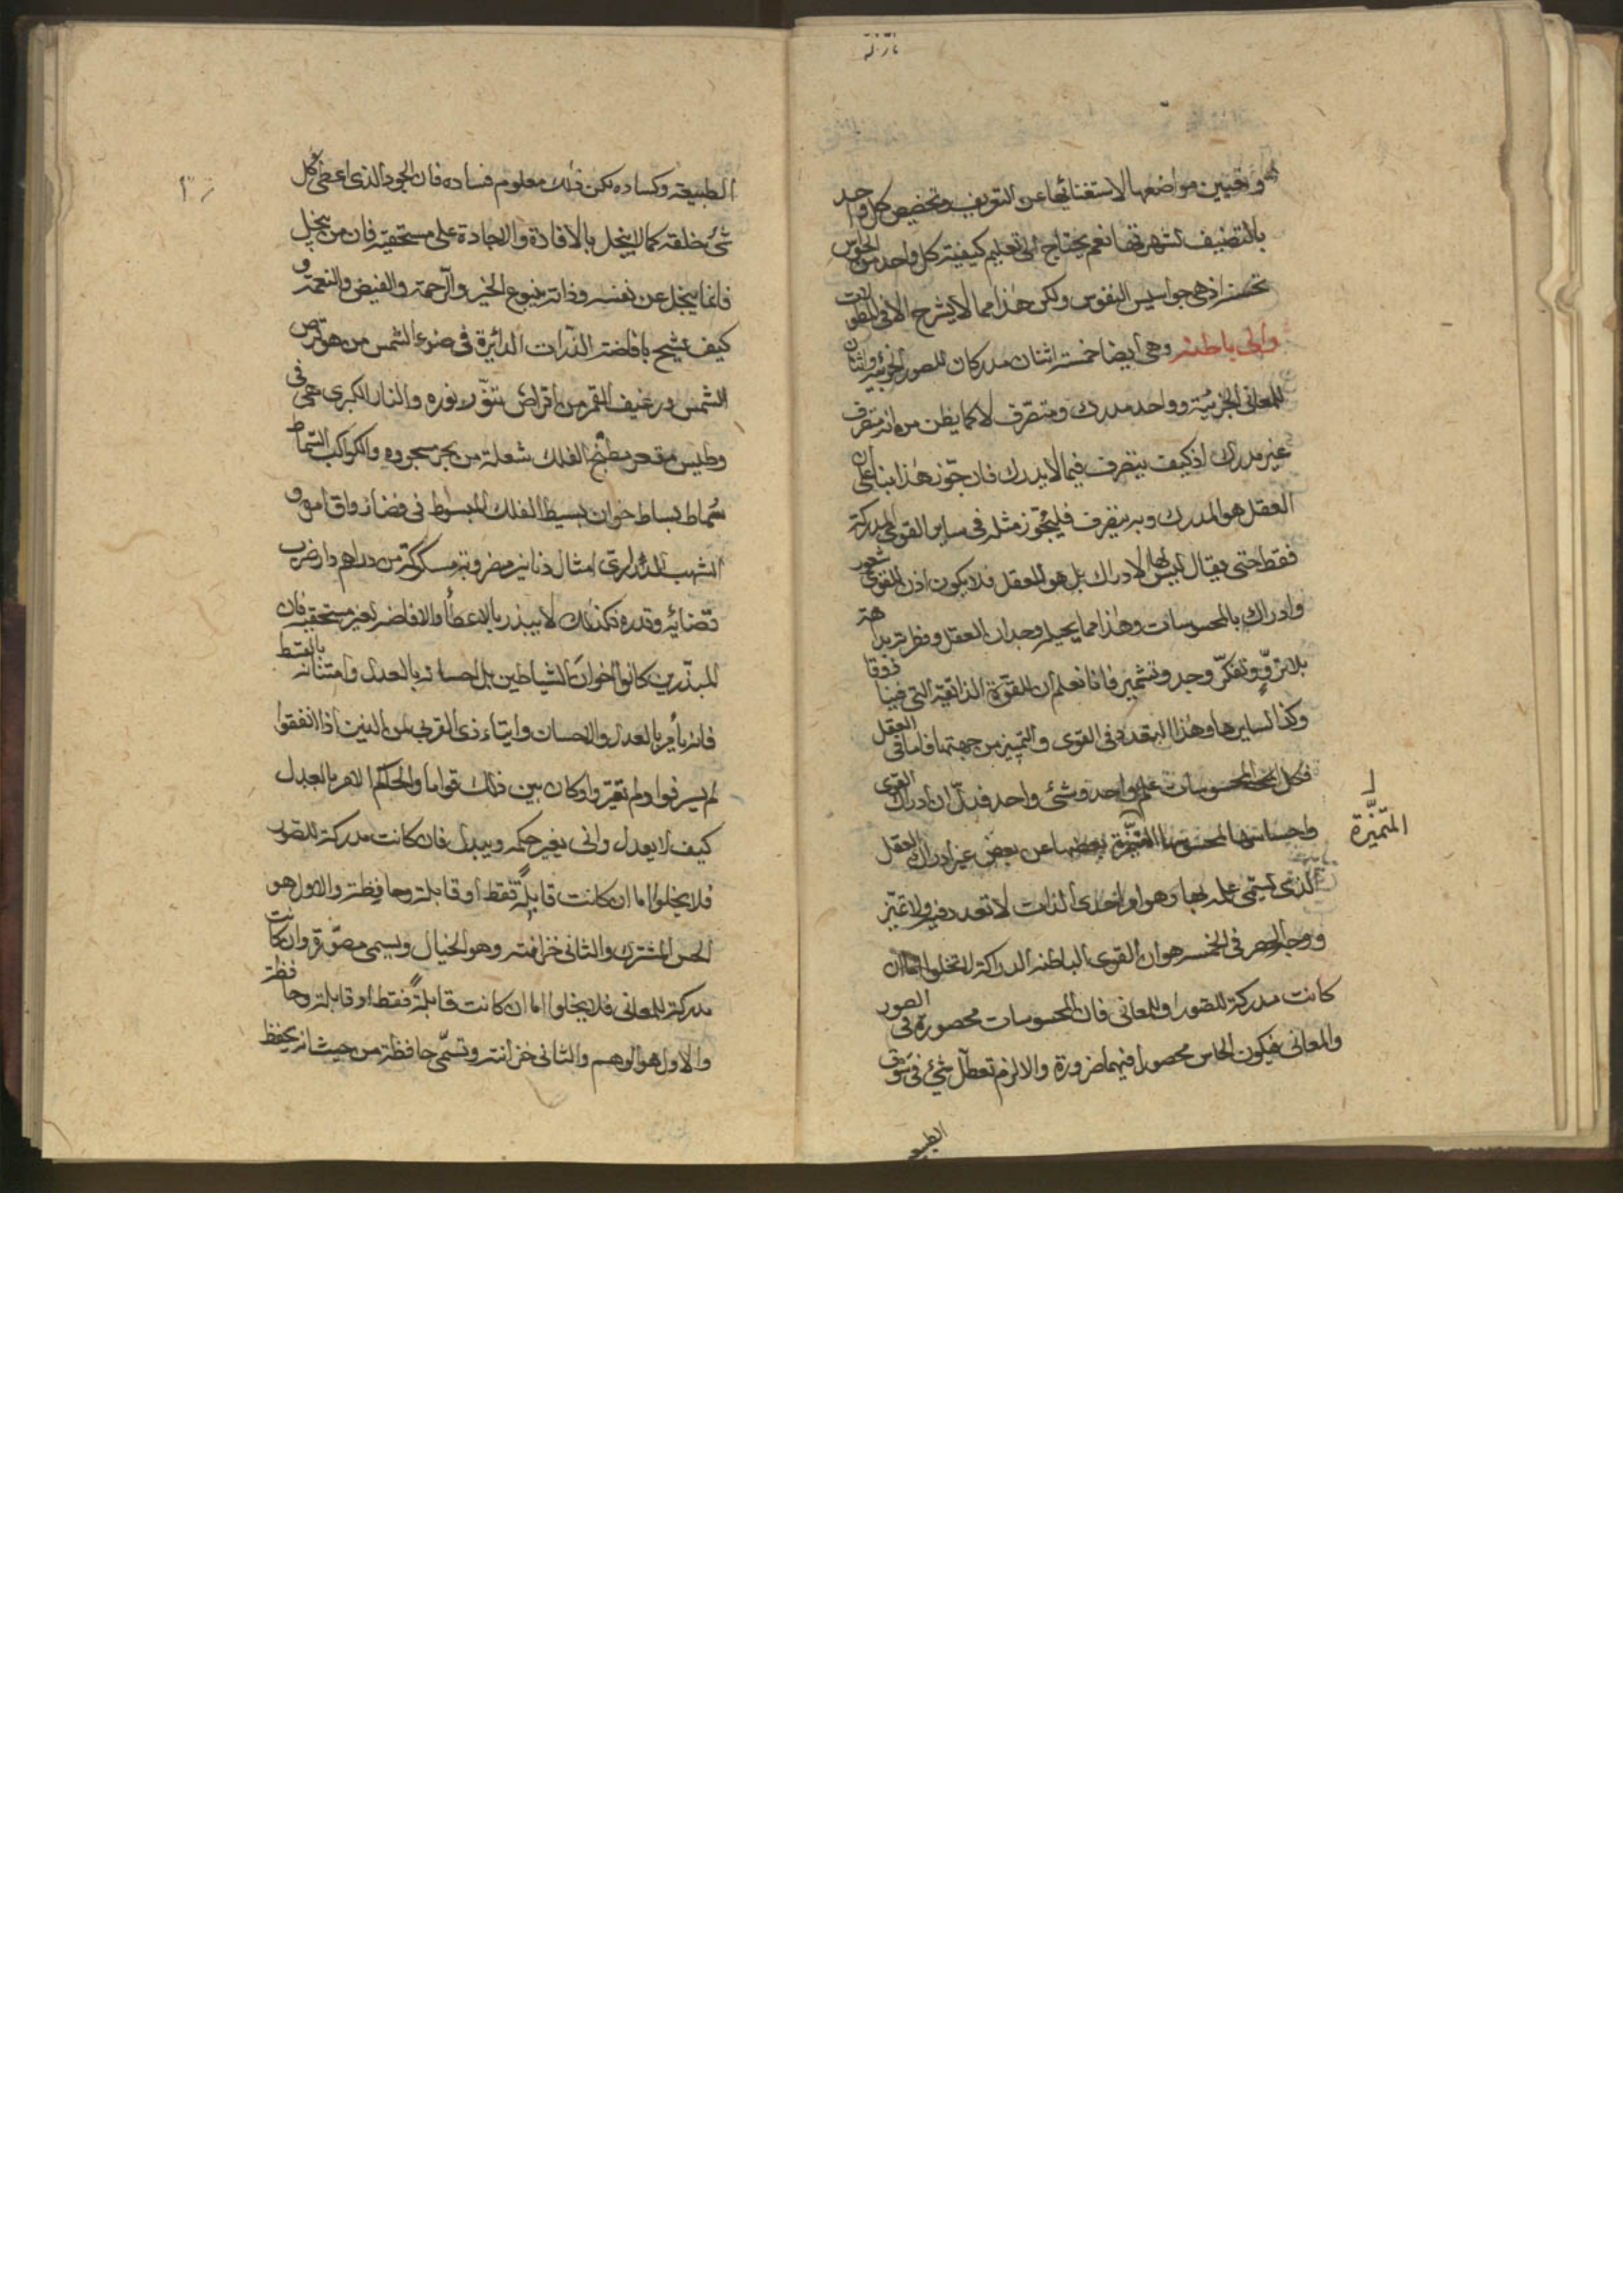 وتعيين مواضعها لاستغنائها عن التعريف وتخصيص كل واحد
بالتصنيف لشهرتها نعم يحتاج الى تعليم كيفية كل واحد من الحواس
اذ هى جواسيس النفوس ولكن هذا مما لا يشرح الا فى المطولات
والى باطنة وهى ايضا خمسة اثنتان مدركتان للصور الجزئية واثنتان
للمعانى الجزئية وواحد مدرك ومتصرف لا كما يظن من انه متصرف
غير مدرك اذ كيف يتصرف فيما لا يدرك فان جوز هذا بناء على ان
العقل هو المدرك وبه يتصرف فليجوز مثله فى ساير القوى المدركة
فقط حتى يقال ليس لها الادراك بل هو العقل فلا يكون اذن للقوى شعور
وادراك بالمحسوسات وهذا مما يحيله وجدان العقل
بلا تروّ وتفكّر وجد وتشمير فانا نعلم ان للقوة الذائقة التى فينا ذوقا
وكذا لسايرها وهذا التعدد فى القوى والتميز من جهتها فاما فى العقل
فكل المحسوسات علم واحد وشئ واحد فدلّ ان ادراك القوى
واحساسها المحسوسات المتميزة بعضها عن بعض غير ادراك العقل
المتميّزة
الذى يسمى علمه بها وهو احدى الذات لا تعدد فيه ولا تميّز
ووجه الحصر فى الخمسة هو ان القوى الباطنة الدراكة لا تخلوا اما ان
كانت مدركة للصور او للمعانى فان المحسوسات محصورة فى الصور
والمعانى فيكون الحاس محصورا فيهما ضرورة والا لزم تعطّل شئ فى سوق
الطبيعة
الطبيعة وكساده لكن ذلك معلوم فساده فان الجود الذى اعطى كل
شئ خلقه كما لا يبخل بالافادة والاجادة على مستحقيه فان من يبخل
فانما يبخل عن نفسه وذاته ينبوع الخير والرحمة والفيض والنعمة و
كيف يشح بافاضة الذرات الدائرة فى ضوء الشمس من هو قرص
الشمس ورغيف القمر من اقراض تنوّر نوره والنار الكبرى هى فى
وطيس مقعر مطبخ الفلك شعلة من بحر مسجوره والكواكب السماط
سماط بساط خوان بسيط الفلك المبسوط فى فضائه واقاموه و
الشهب الدرارى امثال دنانير مضروبة مسكوكة من دراهم دار ضرب
قضائه وقدره فكذلك لا يبذر بالاعطاء والافاضة لغير مستحقيه فان
المبذّرين كانوا اخوان الشياطين بل احسانه بالعدل وامتنانه بالقسط
فانه يأمر بالعدل والاحسان وايتاء ذى القربى من الذين اذا انفقوا
لم يسرفوا ولم يقتروا وكان بين ذلك قواما والحاكم الامر بالعدل
كيف لا يعدل وانى يغير حكمه ويبدل فان كانت مدركة للصور
فلا يخلوا اما ان كانت قابلةً فقط او قابلة وحافظة والاول هو
الحس المشترك والثانى خزانته وهو الخيال ويسمى مصوّرة وان كانت
مدركة للمعانى فلا يخلوا اما ان كانت قابلةً فقط او قابلة وحافظة
والاول هو الوهم والثانى خزانته وتسمّى حافظة من حيث انه يحفظ